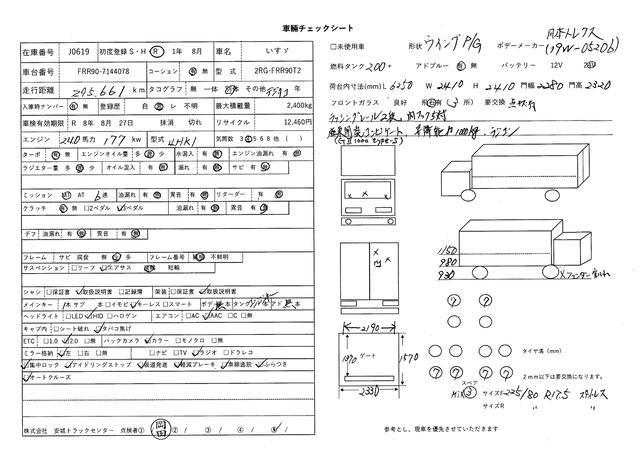 車輛チェックシート
在庫番号 J0619 初度登録 S・H・R 1年 8月 車名 いすゞ
車台番号 FRR90-7144078 コーション 有 無 型式 2RG-FRR90T2
走行距離 295,661 km タコグラフ 無 一体 その他
入庫時ナンバー 有 無 登録歴 自 レ 不明 最大積載量 2,400kg
車検有効期限 R 8年 8月 27日 抹消 切れ リサイクル 12,460円
エンジン 240馬力 177kw 型式 4HK1 気筒数 3 4 5 6 8 他 ( )
ターボ 有 無 エンジンオイル量 多 少 水混入 有 無 エンジン油漏れ 有 無
ラジエター量 多 少 オイル混入 有 無 漏れ 有 無 サビ 有 無
ミッション MT AT 6速 油漏れ 有 無 異音 有 無 リターダー 有 無
クラッチ 有 無 □2ペダル ペダル 油漏れ 有 無 異音 有
デフ 油漏れ 有 無 異音 有 無
フレーム サビ 腐食 無 少 多 フレーム番号 不鮮明
サスペンション □リーフ エアサス 総輪
シャシ □保証書 取扱説明書 □記録簿 架装 □保証書 取扱説明書
メインキー 1本 サブ 本 □イモビ キーレス □スマート ボデー
ヘッドライト □LED HID □ハロゲン エアコン □AC AAC □C □無
キャブ内 □シート破れ タバコ焦げ
ETC □1.0 2.0 □無 バックカメラ カラー □モノクロ □無
ミラー格納 左 □右 □無 □ナビ □TV ラジオ □ドラレコ
集中ロック アイドリングストップ 坂道発進 軽減ブレーキ 車線逸脱 ふらつき
オートクルーズ
株式会社 安城トラックセンター 点検者① 岡田 ②/ ③/ ④/ ⑤/
□未使用車 形状 ウイングP/G ボデーメーカー 日本トレクス
(19W-05206)
燃料タンク 200+ アドブルー 有 無 バッテリー 12V
荷台内寸法(mm) L 6250 W 2410 H 2410 門幅 2280 門高 2320
フロントガラス 良好 飛石有 ( 3 )所 要交換
ラッシングレール2段
(GⅡ1000 type-S)
1150
980
930
2190
1890 ゲート 1570
2330
タイヤ溝 (mm)
2mm以下は要交換になります。
スペア
サイズF 225/80 R17.5
サイズR 〃 〃
参考とし、現車を優先させていただきます